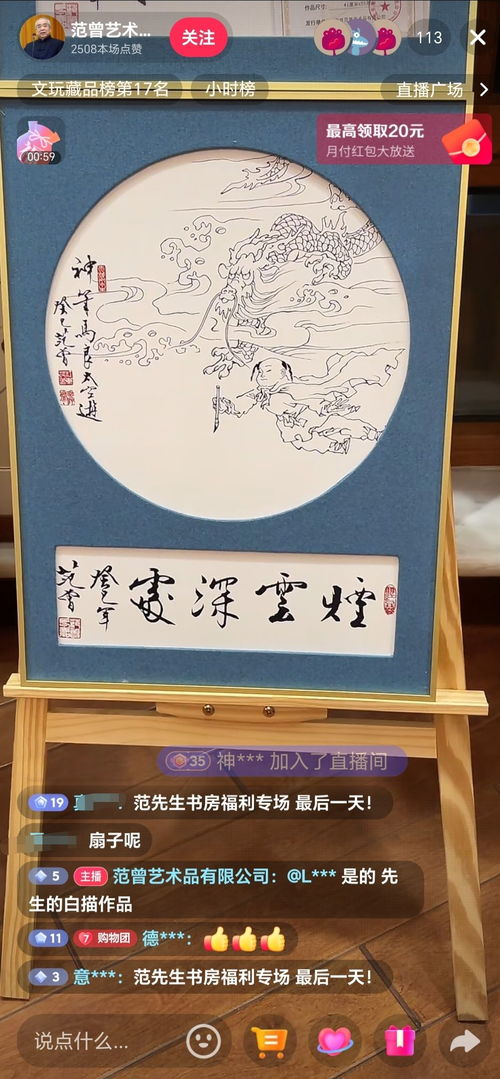 范曾艺术...
2508本场点赞
关注
113
文玩藏品榜第17名
小时榜
直播广场
00:59
最高领取20元
月付红包大放送
神筆馬良太空遊
癸巳范曾
煙雲深處
癸巳年
范曾
35 神*** 加入了直播间
19 范先生书房福利专场 最后一天！
扇子呢
5 主播 范曾艺术品有限公司：@L*** 是的 先
生的白描作品
11 7 购物团 德***：👍👍👍
3 意***：范先生书房福利专场 最后一天！
说点什么...